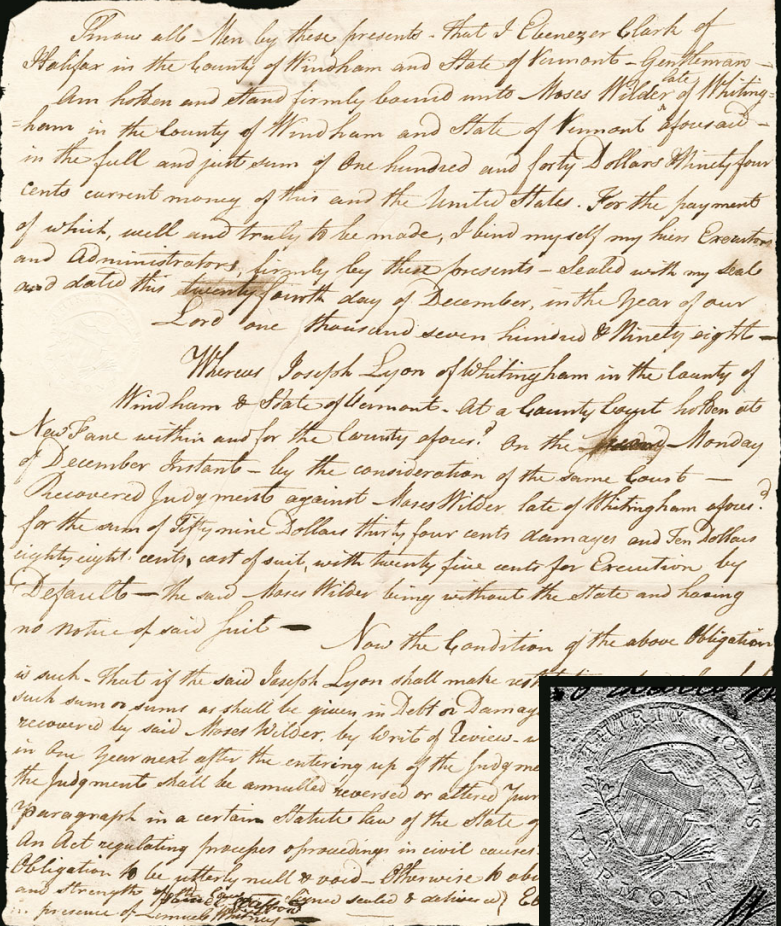 Know all Men by these presents - that I Ebenezer Clark of
Halifax in the County of Windham and State of Vermont - Gentleman -
Am holden and stand firmly bound unto Moses Wilder late of Whiting=
=ham in the County of Windham and State of Vermont aforesaid -
in the full and just sum of One hundred and forty Dollars & Ninety four
cents current money of this and the United States. For the payment
of which, well and truly to be made, I bind myself my heirs Executors
and Administrators, firmly by these presents - Sealed with my seal
and dated this twenty fourth day of December, in the Year of our
Lord one thousand seven hundred & Ninety eight -
Whereas Joseph Lyon of Whitingham in the County of
Windham & State of Vermont - At a County Court holden at
New Fane within and for the County afores.d On the Monday
of December Instant - by the consideration of the same Court -
Recovered Judgment against Moses Wilder late of Whitingham afores.d
for the sum of Fifty nine Dollars thirty four cents damages and Ten Dollars
eighty eight cents, cost of suit, with twenty five cents for Execution by
Default - the said Moses Wilder being without the State and having
no notice of said suit -
Now the Condition of the above Obligation
is such - that if the said Joseph Lyon shall make
such sum or sums as shall be given in Debt or Damag
recovered by said Moses Wilder, by Writ of Review
in One Year next after the entering up of the Judgme
the Judgment shall be annulled reversed or altered
Paragraph in a certain Statute law of the State of
An Act regulating process & proceedings in civil causes
Obligation to be utterly null & void - Otherwise to
and strength signed sealed & delivered
presence of Lemuel Whitney
THIRTY CENTS
VERMONT